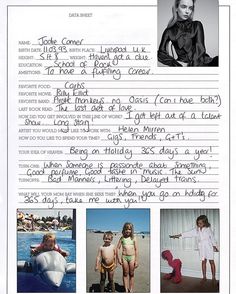 DATA SHEET
NAME: Jodie Comer
BIRTH DATE: 11.03.93 BIRTH PLACE: Liverpool U.K
HEIGHT: 5ft 8 WEIGHT: Haven't got a clue
EDUCATION: School of Rock
AMBITIONS: To have a fulfilling Career.
FAVORITE FOOD: Carbs
FAVORITE MOVIE: Billy Elliot
FAVORITE BAND: Arctic Monkeys no Oasis (Can i have both?)
BOOK: The last days of love.
HOW DID YOU GET INVOLVED IN THE LINE OF WORK? I got left out of a talent
Show... Long Story!
ARTIST YOU WOULD LIKE TO WORK WITH: Helen Mirren
HOW DO YOU LIKE TO SPEND YOUR TIME? Gigs, Friends, G+T's.
YOUR IDEA OF HEAVEN: Being on Holiday 365 days a year!
TURN ONS: When Someone is passionate about Something.
Good perfume. Good taste in music. The Sun
TURNOFFS: Bad Manners, Littering, Delayed trains.
WHAT WILL YOUR MOM SAY WHEN SHE SEES THIS? When you go on holiday for
365 days, take me with you!